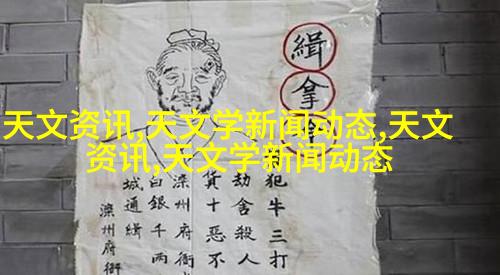 天文资讯,天文学新闻动态,天文
资讯,天文学新闻动态
緝拿
犯牛三打
劫舍殺人
貨十惡不
滦州府衙
白銀千两
城通緝
滦州府衙